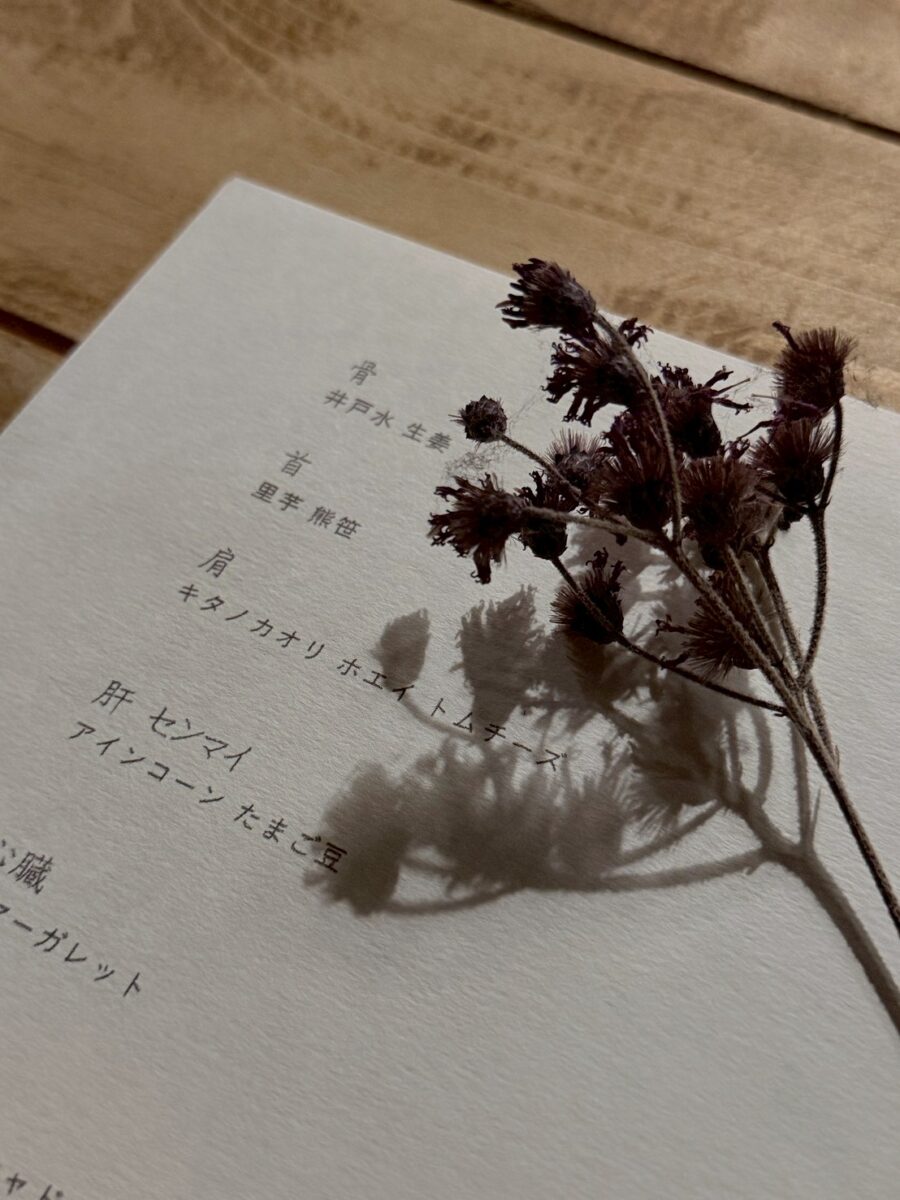 骨
井戸水 生姜
首
里芋 熊笹
肩
キタノカオリ ホエイ トムチーズ
肝 センマイ
アインコーン たまご豆
心臓
マーガレット